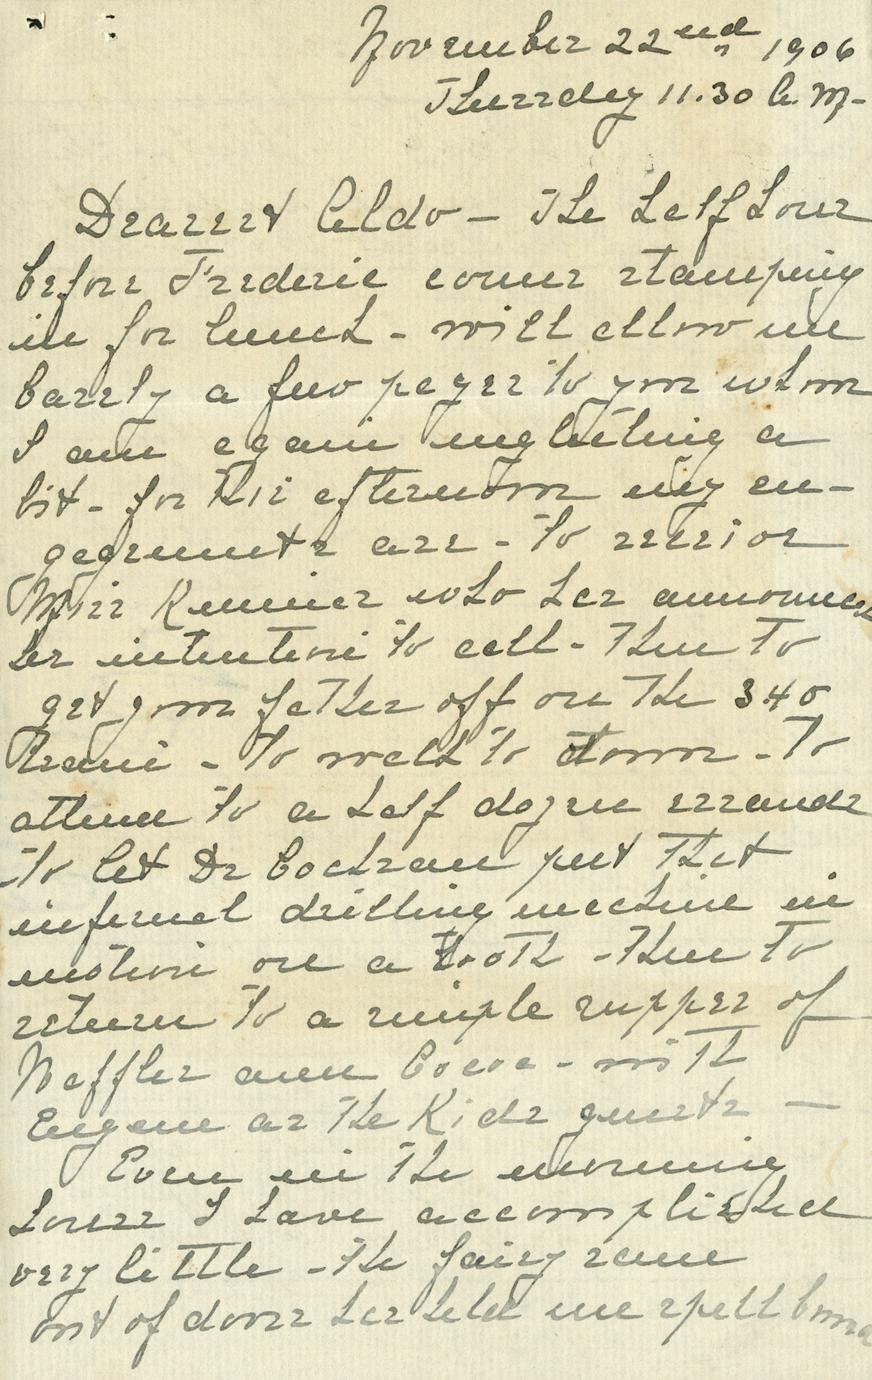 November 22nd, 1906
Thursday 11.30 A.M-
Dearest Aldo - The half hour
before Frederic comes stamping
in for lunch - will allow me
barely a few pages to you whom
I am again neglecting a
bit - for this afternoon my en-
gagements are - to receive
Miss Kummer who has announced
her intention to call - then to
get your father off on the 340
train - to walk to town - to
attend to a half dozen errands
- to let Dr Cochran put that
infernal drilling machine in
motion on a tooth - then to
return to a simple supper of
Waffles and Cocoa - with
Eugene as the Kids guests -
Even in the morning
hours I have accomplished
very little - the fairy scene
out of doors has held me spell bound